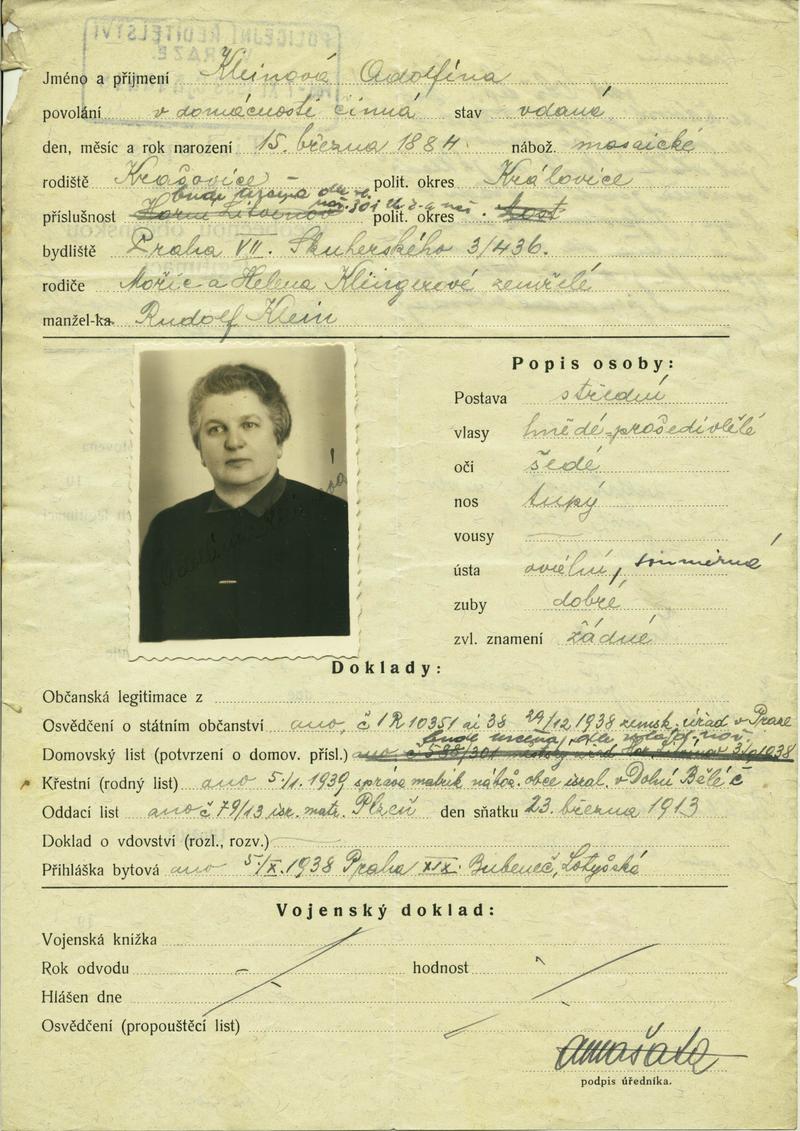 POLICEJNÍ ŘEDITELSTVÍ
Jméno a příjmení Kleinová Adolfína
povolání v domácnosti činná stav vdaná
den, měsíc a rok narození 15. března 1884. nábož. mosaické
rodiště Krašovice polit. okres Kralovice
příslušnost Horní Litvínov polit. okres Most
bydliště Praha VII. Skuherského 3/436.
rodiče Mořic a Helena Klingerové zemřelé
manžel-ka Rudolf Klein
Popis osoby:
Postava střední
vlasy hnědé-prošedivělé
oči šedé
nos tupý
vousy
ústa oválná, souměrná
zuby dobré
zvl. znamení žádné
Doklady:
Občanská legitimace z
Osvědčení o státním občanství ano, č I R 10351 ai 38 29/12 1938 zemsk. úřad v Praze
Domovský list (potvrzení o domov. přísl.) ano
Křestní (rodný list) ano 5./1. 1939 správa matrik nábož. obce israel. v Dolní Bělé č
Oddací list ano č 79/13 isr. matr. Plzeň den sňatku 23. března 1913
Doklad o vdovství (rozl., rozv.)
Přihláška bytová ano 5/X. 1938 Praha XIX. Bubeneč, Lotyšská
Vojenský doklad:
Vojenská knížka
Rok odvodu hodnost
Hlášen dne
Osvědčení (propouštěcí list)
podpis úředníka.